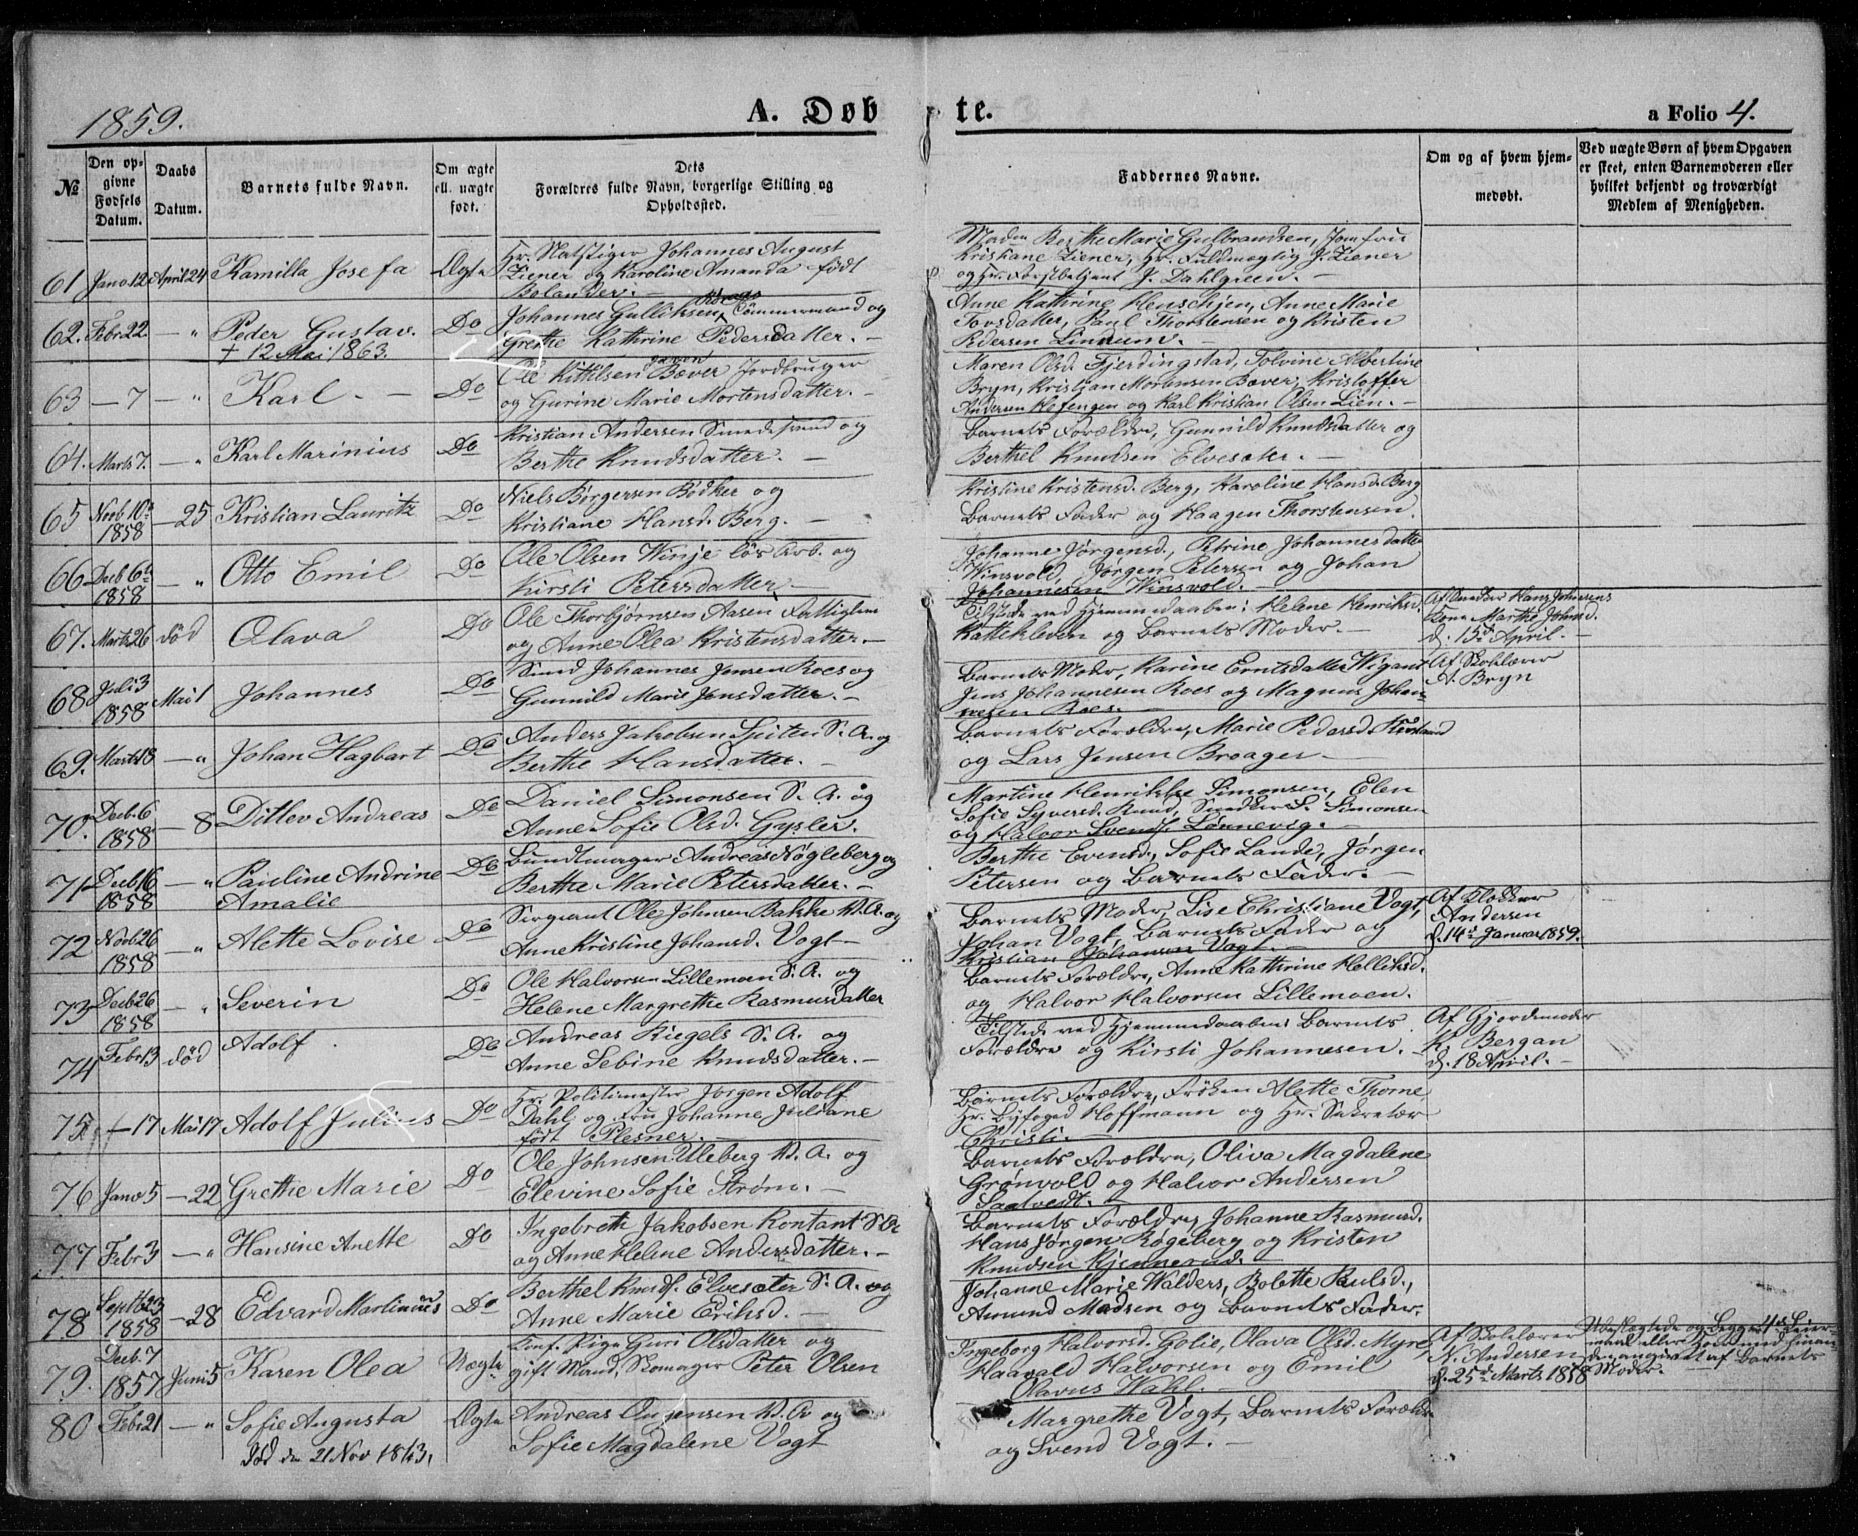 1859.
A. Døb te.
a Folio 4.
No
Den opgivne Fødsels Datum.
Daabs Datum.
Barnets fulde Navn.
Om ægte ell. uægte født.
Dets Forældres fulde Navn, borgerlige Stilling og Opholdssted.
Faddernes Navne.
Om og af hvem hjemmedøbt.
Ved uægte Børn af hvem Opgaven er skeet, enten Barnemoderen eller hvilket bekjendt og troværdigt Medlem af Menigheden.
61 Janr 12 April 24 Kamilla Josefa Ægte Hr. Johannes August
Ziener og Karoline Amanda født
Bolander.
Berthe Marie Gulbrandsen, Jomfru
Kristiane Ziener, Hr. Fuldmægtig J. Ziener
og Hr. Forstbetjent J. Dahlgreen.
62. Febr 22. — " Peder Gustav. Do Johannes Gulliksen Tømmermand og
† 12 Mai 1863.
Grethe Kathrine Pedersdatter. —
Anne Kathrine Henschien, Anne Marie
Tovsdatter, Paul Thorstensen og Kristen
Pedersen Lindrum. —
63 — 7 — " Karl. — Do Ole Kittilsen Bæver Jordbruger
og Gurine Marie Mortensdatter. —
Maren Olsd. Fjerdingstad, Tolvine Albertine
Bryn, Kristian Mortensen Bæver, Kristoffer
Andersen Hefengen og Karl Kristian Olsen Lien. —
64. Marts 7. — " Karl Marinius Do Kristian Andersen Smedesvend og
Berthe Knudsdatter. —
Barnets Forældre, Gunnild Knudsdatter og
Berthel Knudsen Elvesæter. —
65 Novb 10de 1858 — 25 Kristian Lauritz Do Niels Børgersen Bødker og
Kristiane Hansd. Berg. —
Kristine Kristensd. Berg, Karoline Hansd. Berg
Barnets Fader og Haagen Thorstensen.
66 Decb 6te 1858 — " Otto Emil Do Ole Olsen Winje løs Arb. og
Kirsti Petersdatter
Johanne Jørgensd., Petrine Johannesdatter
Winsvold, Jørgen Petersen og Johan
Johannesen Winsvold. —
67. Marts 26 død Olava Do Ole Thorbjørnsen Aasen Fattiglem
og Anne Olea Kristensdatter. —
Tilstede ved Hjemmedaaben: Helene Henriksd.
Kattekleven og Barnets Moder. —
Af Snedker Hans Johnsens
Kone Marthe Johnsd.
d. 15de April. —
68 Juli 3 1858 Mai 1 Johannes Do Smed Johannes Jensen Roes og
Gunnild Marie Jensdatter. —
Barnets Moder, Karine Erntsdatter Wigant
Jens Johannesen Roes og Magnus Johan-
nesen Roes. —
Af Skolelærer
A. Bryn
69. Marts 18 — " Johan Hagbart Do Anders Jakobsen S. A. og
Berthe Hansdatter. —
Barnets Forældre, Marie Pedersd.
og Lars Jensen Broager. —
70. Decb. 6 1858 — 8 Ditlev Andreas Do Daniel Simonsen S. A. og
Anne Sofie Olsd. Gysler.
Martine Henrikke Simonsen, Elen
Sofie Syversd. Rund, Snedker S. Simonsen
og Halvor Svends. Lønnevig. —
71 Decb 16 1858 — " Pauline Andrine
Amalie
Do Bundtmager Andreas Nøgleberg og
Berthe Marie Petersdatter. —
Berthe Evensd., Sofie Lande, Jørgen
Petersen og Barnets Fader. —
72 Novb 26 1858 — " Alette Lovise Do Sergeant Ole Johnsen Bakke V. A. og
Anne Kristine Johansd. Vogt —
Barnets Moder, Lise Christiane Vogt,
Johan Vogt, Barnets Fader og
Kristian Johansen Vogt. —
Af Klokker
Andersen
d. 14de Januar 1859.
73 Decb 26 1858 — " Severin Do Ole Halvorsen Lillemoen S. A. og
Helene Margrethe Rasmusdatter
Barnets Forældre, Anne Kathrine Helliksd.
og Halvor Halvorsen Lillemoen.
74 Febr 13 død Adolf. Do Andreas Riegels S. A. og
Anne Sebine Knudsdatter. —
Tilstede ved Hjemmedaaben: Barnets
Forældre og Kirsti Johannesen. —
Af Gjordemoder
K. Bergan
d. 18 April. —
75. — 17 Mai 17 Adolf Julius Do Hr. Politimester Jørgen Adolf
Dahl og Fru Johanne Juliane
født Plesner. —
Barnets Forældre, Frøken Alette Thorne
Hr. Byfoged Hoffmann og Hr. Sekretær
Christi. —
76 Janr 5 — 22 Grethe Marie Do Ole Johnsen Uleberg V. A. og
Elevine Sofie Strøm. —
Barnets Forældre, Oliva Magdalene
Grønvold og Halvor Andersen
Saatvedt. —
77 Febr 3 — " Hansine Anette Do Ingebreth Jakobsen Kontant S. A.
og Anne Helene Andersdatter. —
Barnets Forældre, Johanne Rasmusd.
Hans Jørgen Røgeberg og Kristen
Knudsen Kjennerud. —
78 Septb 23 1858 — 28 Edvard Martinius Do Berthel Knuds. Elvesæter S. A. og
Anne Marie Eriksd. —
Johanne Marie Walders, Bolette Paulsd.,
Amund Madsen og Barnets Fader.
79. Decb. 7 1857 Juni 5 Karen Olea Uægte Konf. Pige Guri Olsdatter og
gift Mand, Skomager Peter Olsen
Ingeborg Halvorsd. Golie, Olava Olsd. Myre,
Haavald Halvorsen og Emil
Olavus Wahl. —
Af Skolelærer
N. Andersen
d. 25de Marts 1858
Ubeslægtede og Begges 4de Leier-
maal
angivet af Barnets
Moder.
80 Febr 21 — " Sofie Augusta Ægte Andreas Jensen V. A og
død den 21 Nov 1863.
Sofie Magdalene Vogt
Margrethe Vogt, Barnets Forældre
og Svend Vogt. —